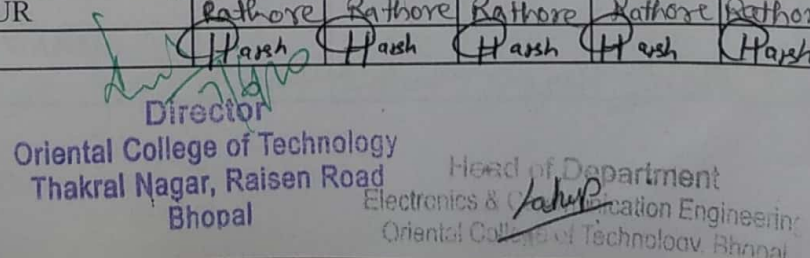 UR Rathore Rathore Rathore Rathore Rathor
Harsh Harsh Harsh Harsh Harsh
Director
Oriental College of Technology
Thakral Nagar, Raisen Road
Bhopal
Head of Department
Electronics & Communication Engineering
Oriental College of Technology, Bhopal